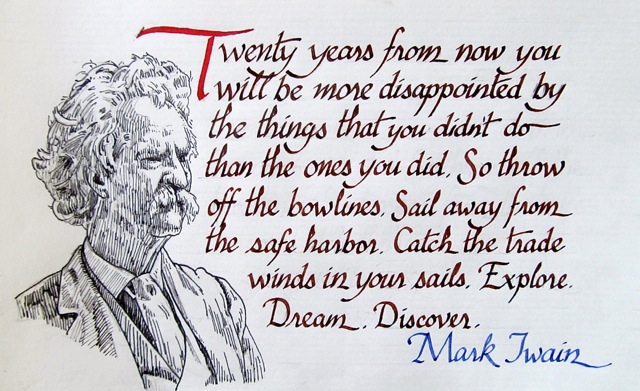 Twenty years from now you
will be more disappointed by
the things that you didn't do
than the ones you did. So throw
off the bowlines. Sail away from
the safe harbor. Catch the trade
winds in your sails. Explore.
Dream. Discover.
Mark Twain